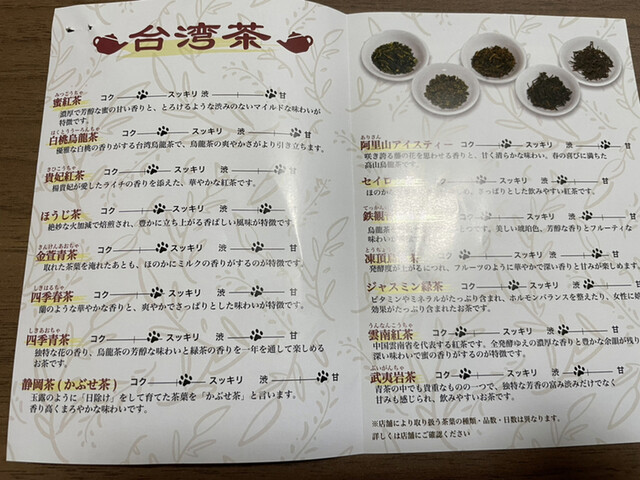 台湾茶
みつこうちゃ
蜜紅茶 コク スッキリ 渋 甘
濃厚で芳醇な蜜の甘い香りと、とろけるような渋みのないマイルドな味わいが
特徴です。
はくとううーろんちゃ
白桃烏龍茶 コク スッキリ 渋 甘
優雅な白桃の香りがする台湾烏龍茶で、烏龍茶の爽やかさがより引き立ちます。
きひこうちゃ
貴妃紅茶 コク スッキリ 渋 甘
楊貴妃が愛したライチの香りを添えた、華やかな紅茶です。
ほうじ茶 コク スッキリ 渋 甘
絶妙な火加減で焙煎され、豊かに立ち上がる香ばしい風味が特徴です。
きんけんあおちゃ
金萱青茶 コク スッキリ 渋 甘
取れた茶葉を淹れたあとも、ほのかにミルクの香りがするのが特徴です。
しきはるちゃ
四季春茶 コク スッキリ 渋 甘
蘭のような華やかな香りと、爽やかでさっぱりとした味わいが特徴です。
しきあおちゃ
四季青茶 コク スッキリ 渋 甘
独特な花の香り、烏龍茶の芳醇な味わいと緑茶の香りを一年を通して楽しめる
お茶です。
静岡茶(かぶせ茶) コク スッキリ 渋 甘
玉露のように「日除け」をして育てた茶葉を「かぶせ茶」と言います。
香り高くまろやかな味わいです。
ありさん
阿里山アイスティー コク スッキリ 渋 甘
咲き誇る藤の花を思わせる香りと、甘く清らかな味わい、春の喜びに満ちた
高山烏龍茶です。
セイロ スッキリ 渋 甘
ほのか さっぱりとした飲みやすい紅茶です。
鉄観 スッキリ 渋 甘
烏龍茶 つです。美しい琥珀色、芳醇な香りとフルーティな
味わい
凍頂烏 茶 コク スッキリ 渋 甘
発酵度が上がるにつれ、フルーツのように華やかで深い香りと甘みが楽しめます。
ジャスミン緑茶 コク スッキリ 渋 甘
ビタミンやミネラルがたっぷり含まれ、ホルモンバランスを整えたり、女性に嬉
効果がたっぷり含まれたお茶です。
うんなんこうちゃ
雲南紅茶 コク スッキリ 渋 甘
中国雲南省を代表する紅茶です。全発酵ゆえの濃厚な香りと豊かな余韻が残り
深い味わいで蜜の香りがするのが特徴です。
ぶいがんちゃ
武夷岩茶 コク スッキリ 渋 甘
青茶の中でも貴重なものの一つで、独特な芳香の富み渋みだけでなく
甘みも感じられ、飲みやすいお茶です。
※店舗により取り扱う茶葉の種類・品数・日数は異なります。
詳しくは店舗にご確認ください